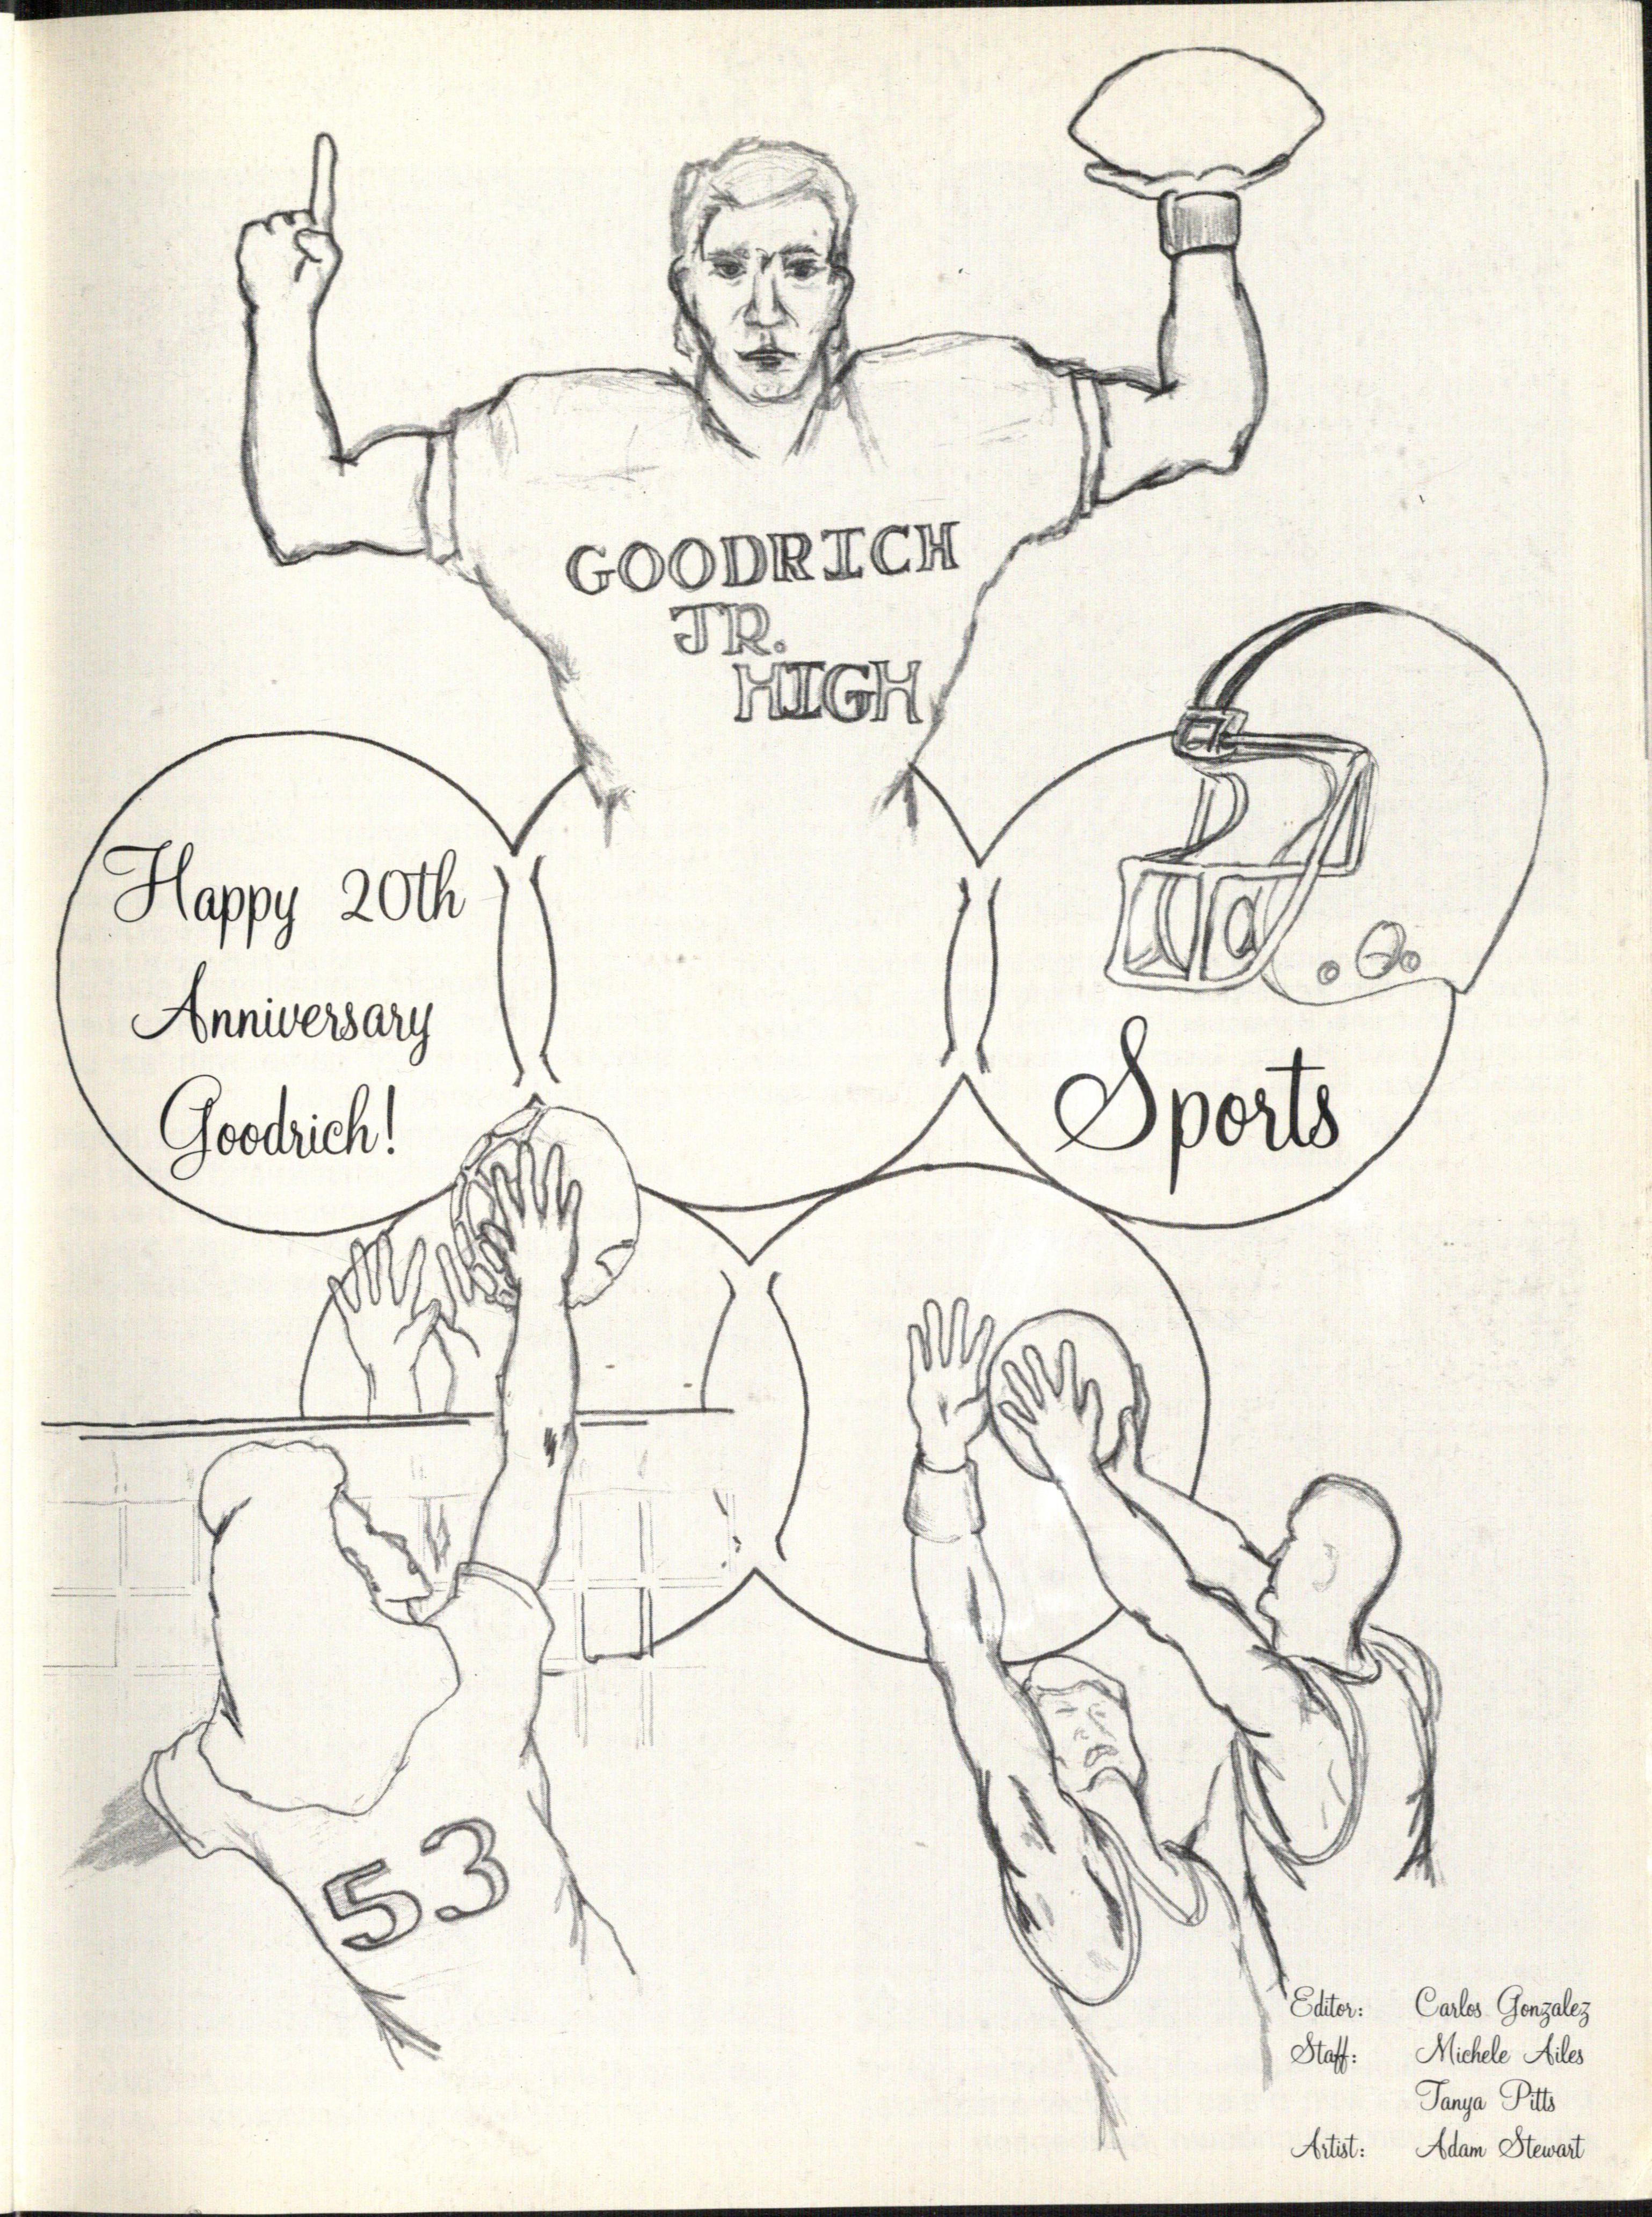 GOODRICH
JR.
HIGH
Happy 20th
Anniversary
Goodrich!
Sports
53
Editor: Carlos Gonzalez
Staff: Michele Ailes
Tanya Pitts
Artist: Adam Stewart